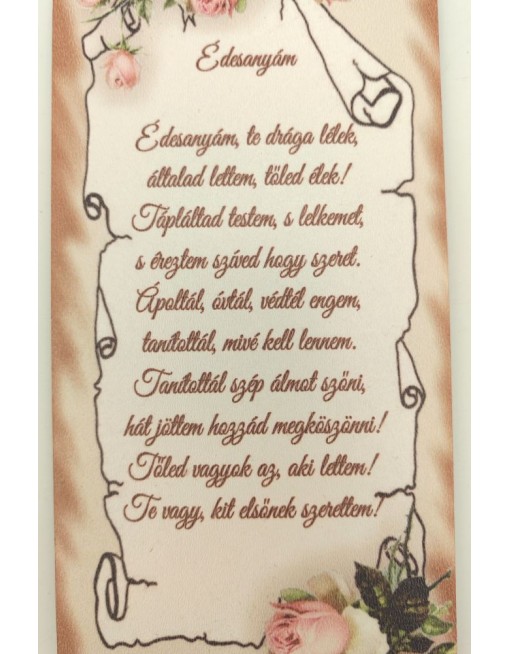 Édesanyám
Édesanyám, te drága lélek,
általad lettem, tőled élek!
Tápláltad testem, s lelkemet,
s éreztem szíved hogy szeret.
Ápoltál, óvtál, védtél engem,
tanítottál, mivé kell lennem.
Tanítottál szép álmot szőni,
hát jöttem hozzád megköszönni!
Tőled vagyok az, aki lettem!
Te vagy, kit elsőnek szerettem!